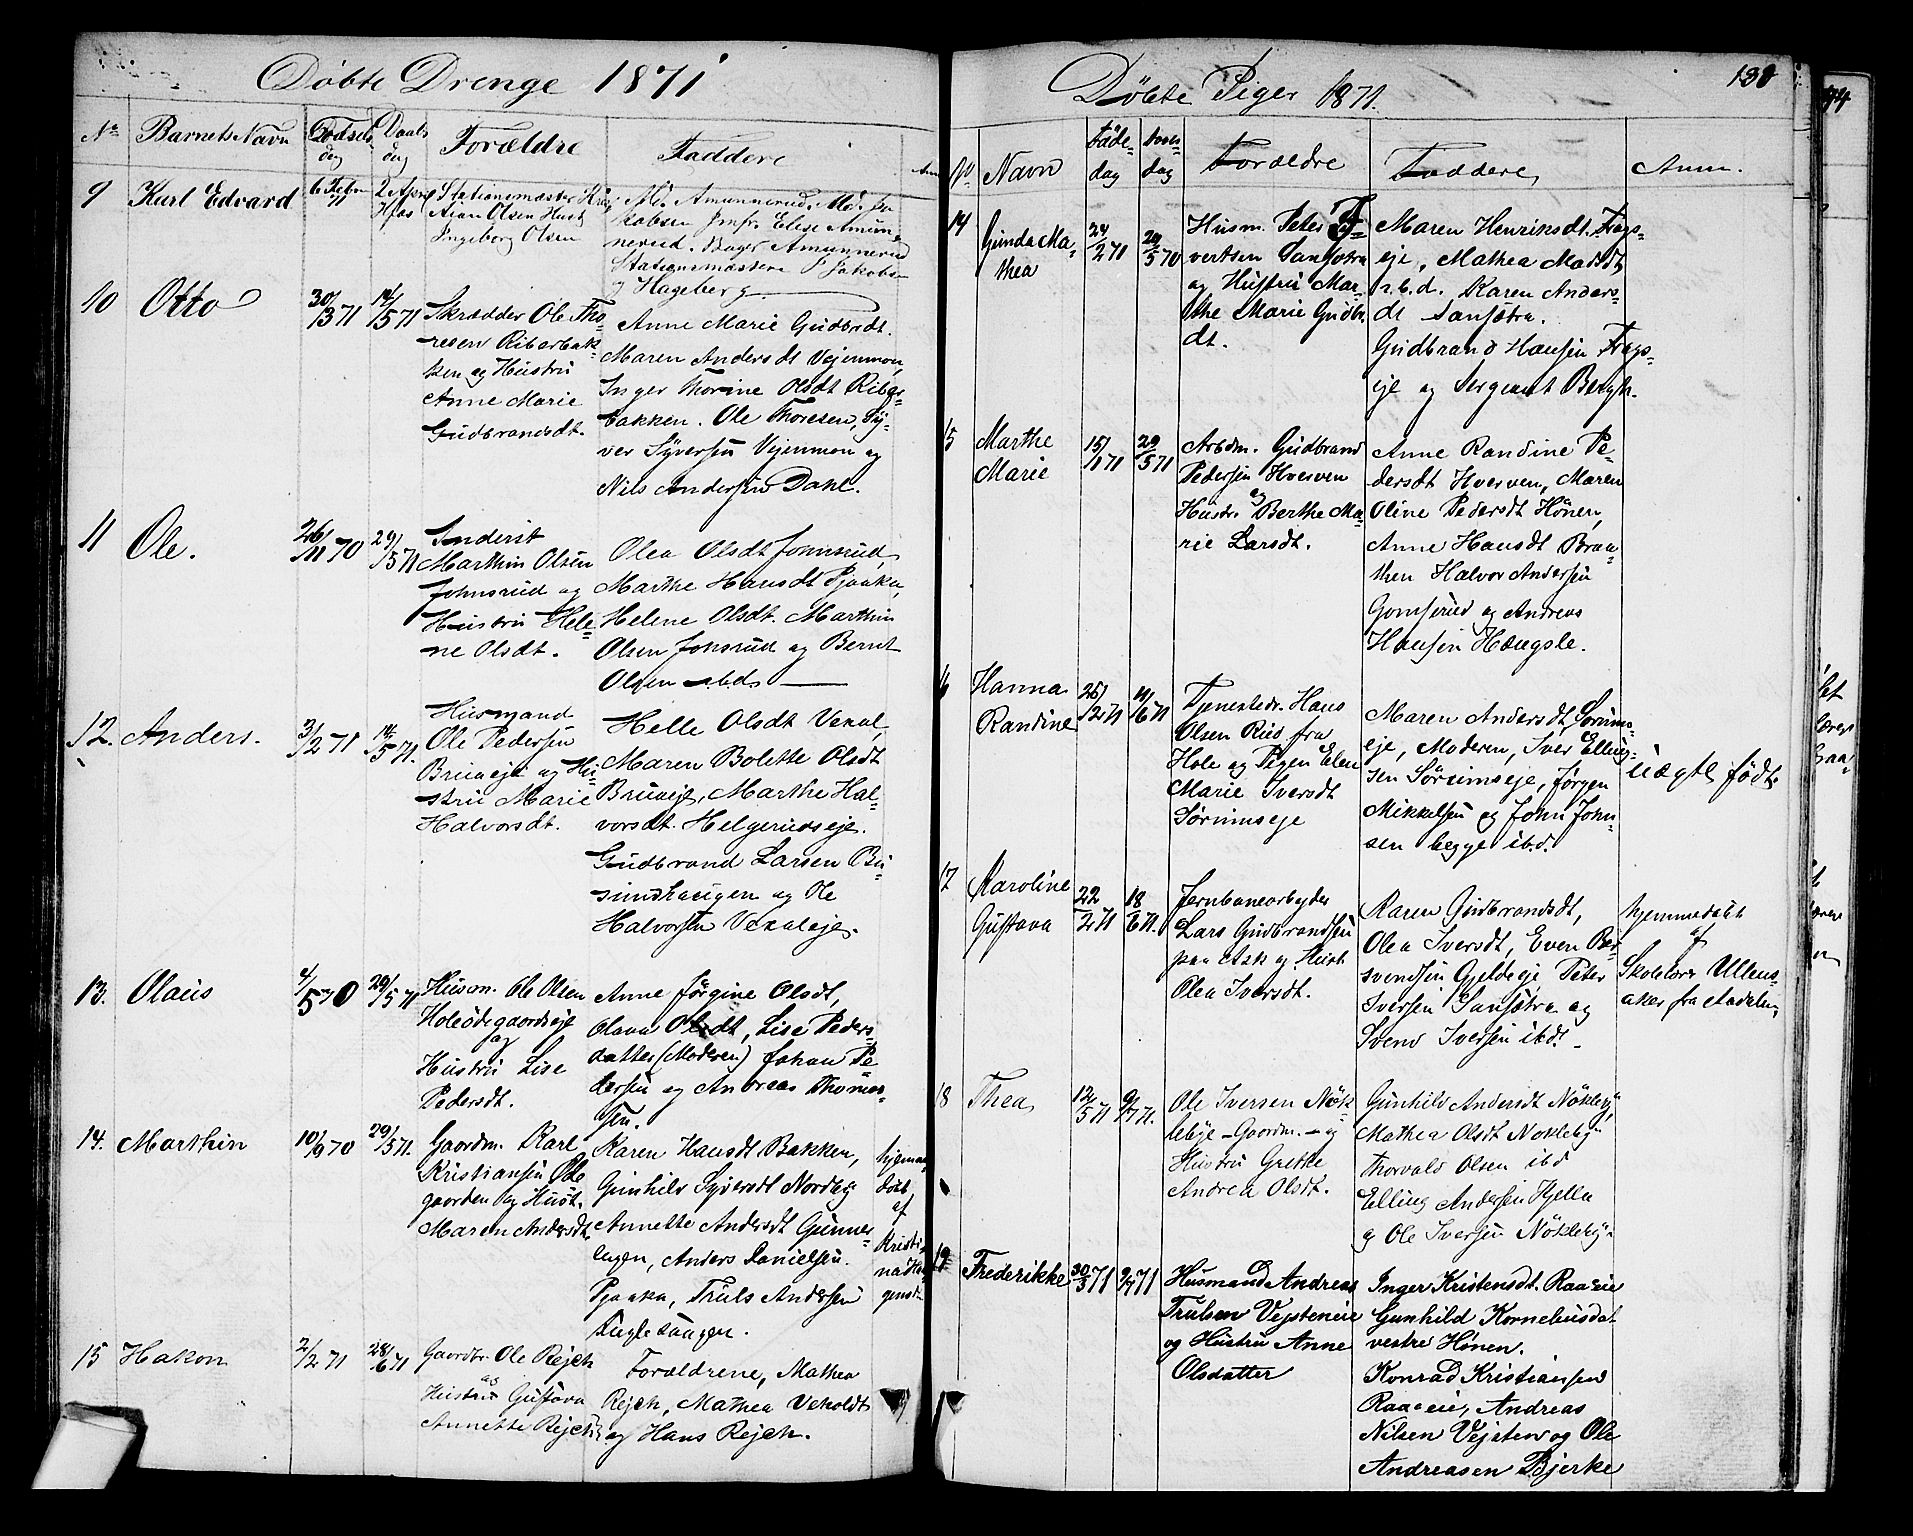 Döbte Drenge 1871
No Barnets Navn Födsels dag Daabs dag Forældre Faddere
9 Karl Edvard 6 Febr 71 2 April
Stationsmæster
Olsen Hust
Ingeborg Olsen
Md. Amunnerud. Md. Ja
kobsen Jmfr. Elise Amun
nerud. Bager Amunnerud
Stationsmæstere P Jakobsen
og Hageberg
10 Otto 30/3 71 14/5 71
Skrædder Ole Tho-
resen Ribarbak-
ken og Hustru
Anne Marie
Gudbrandsdt.
Anne Marie Gudbrdt.
Maren Andersdt Vejenmon,
Inger Thorine Olsdt Ribar-
bakken. Ole Thoresen, Sy-
ver Syversen Vejenmon og
Nils Andersen Dahl.
11 Ole. 26/11 70 29/5 71
Inderst
Marthin Olsen
Johnsrud og
Hustru Hele-
ne Olsdt.
Olea Olsdt Johnsrud,
Marthe Hansdt Pjaaka,
Helene Olsdt. Marthin
Olsen Jonsrud og Bernt
Olsen ibd
12. Anders. 3/2 71 14/5 71.
Husmand
Ole Pedersen
Brueeje og Hu-
stru Marie
Halvorsdt.
Helle Olsdt Vexal,
Maren Bolette Olsdt
Brueeje, Marthe Hal-
vorsdt. Helgerudseje.
Gudbrand Larsen Bu-
simshaugen og Ole
Halvorsen Vexaleje.
13. Olaus 4/5 70 29/5 71
Husm. Ole Olsen
Holeödegaardseje
og
Hustru Lise
Pedersdt.
Anne Jörgine Olsdt,
Olava Olsdt, Lise Peders-
datter (Moderen) Johan Pe-
dersen og Andreas Thomas-
sen.
14. Marthin 10/9 70 29/5 71.
Gaardm. Karl
Kristiansen Öde
gaarden og Hust.
Maren Andersdt.
Karen Hansdt Bakken,
Gunhild Syversdt Nordby
Annette Andersdt Gunnes-
laugen, Anders Danielsen
Pjaaka, Truls Andersen
Fuglehaugen.
hjemme
döbt
af
Kristi
na
15 Hakon 2/2 71 28/6 71
Gaardbr. Ole Rejch
og
Hustru Gustava
Annette Rejch
Forældrene, Mathea
Rejch, Mathea Veholdt
og Hans Rejch.
Döbte Piger 1871. 130
No Navn Föde-dag Daabs-dag Forældre Faddere Anm.
14 Gunda Ma-
thea 24/2 71 29/5 70
Husm. Peter
vertsen Sansötra
og Hustru Mar-
the Marie Gudbr.
dt.
Maren Henriksdt. Frogs-
eje, Mathea Madsdt
i.b.d. Karen Anders-
dt Sansötra.
Gudbrand Hansen Frogs-
eje og Sergeant Bergh.
15 Marthe
Marie 15/1 71 29/5 71
Arbdm. Gudbrand
Pedersen Hverven
og
Hustr. Berthe Ma-
rie Larsdt.
Anne Randine Pe-
dersdt Hverven, Maren
Oline Pedersdt Hönen,
Anne Hansdt Braa-
then Halvor Andersen
Gomserud og Andreas
Hansen Hængsle.
16 Hanna
Randine 25/2 71 4/6 71
Tjenestedr. Hans
Olsen Rud fra
Hole og Pigen Elen
Marie Iversdt
Sörumseje
Maren Andersdt, Sörums-
eje, Moderen, Iver Elling-
sen Sörumseje, Jørgen
Mikkelsen og John John-
sen begge ibd.
uægte födt.
17 Karoline
Gustava 22/2 71 18/6 71.
Jernbanearbejder
Lars Gudbrandsen
paa Ask og Hust.
Olea Iversdt.
Karen Gudbrandsdt,
Olea Iversdt, Even Ber-
svendsen Gjeldeje Peter
Iversen Sansötra og
Svend Iversen ibd.
hjemmedöbt
af
Skolelærer Ullens-
aker fra Aadalen.
18 Thea 12/5 71 9/7 71.
Ole Iversen Nök-
leby - Gaardm. - og
Hustru Grethe
Andrea Olsdt.
Gunhild Andersdt Nökleby,
Mathea Olsdt Nökleby
Thorvald Olsen ibd
Elling Andersen Hjella
og Ole Iversen Nökleby.
19 Frederikke 30/3 71 9/7 71
Husmand Andreas
Trulsen Vejsteneie
og Hustru Anne
Olsdatter
Inger Kristensdt. Raaeeie
Gunhild Korneliusdat
vestre Hönen.
Konrad Kristiansen
Raaeeie, Andreas
Nilsen Vejsten og Ole
Andreasen Bjerke